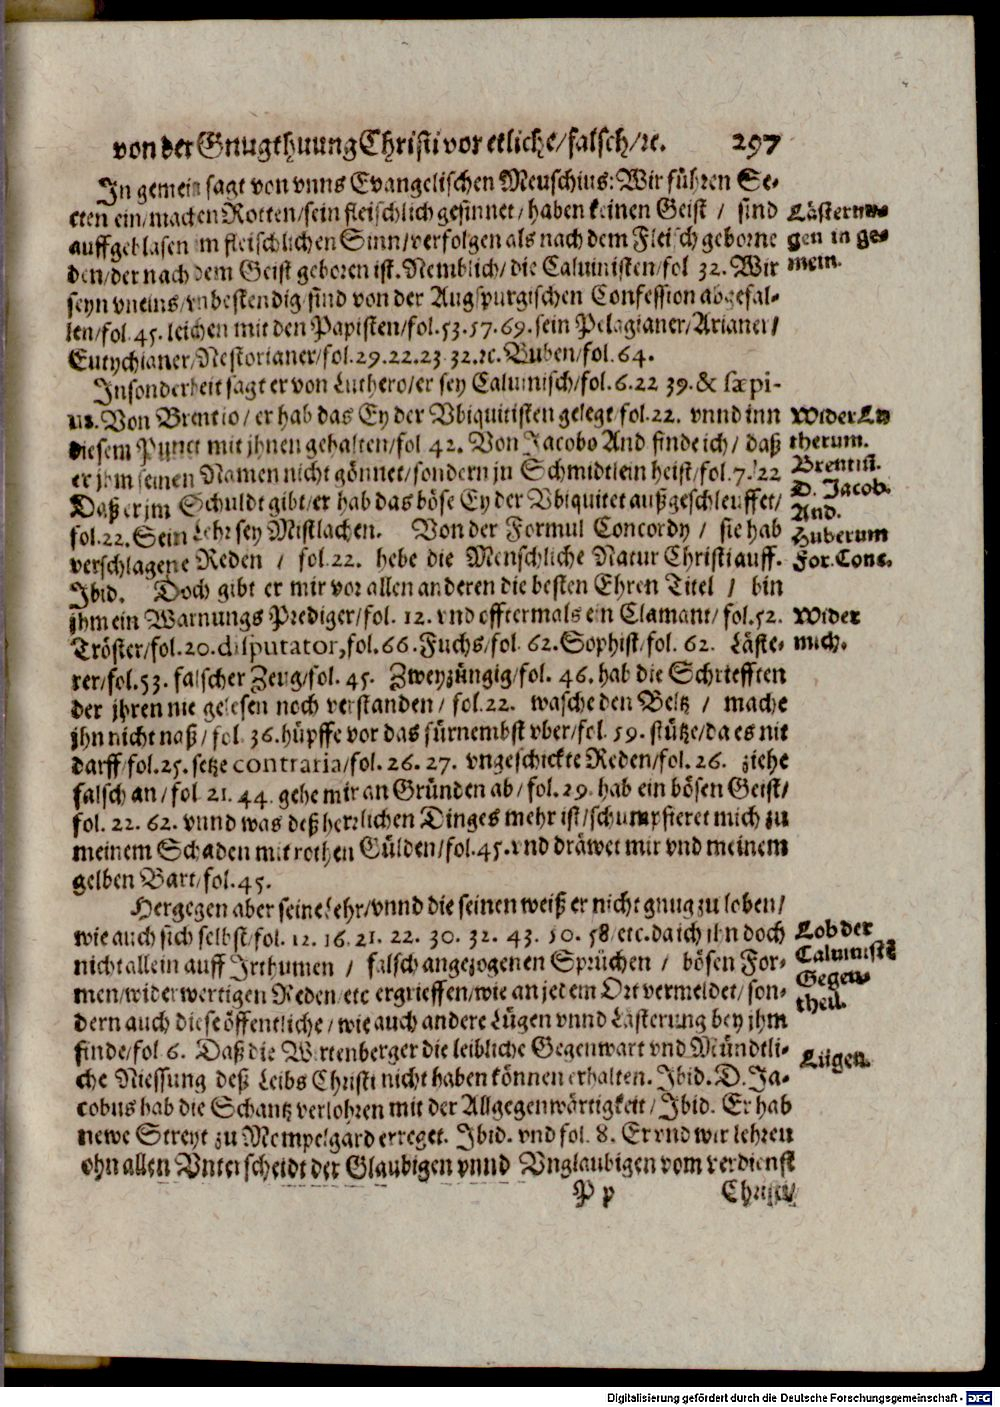 von der Gnugthuung Christi vor etliche/falsch/ꝛc. 297
In gemein sagt von vnns Evangelischen Meuschius: Wir führen Se-
cten ein/machen Rotten/sein fleischlich gesinnet/haben keinen Geist / sind
auffgeblasen im fleischlichen Sinn/verfolgen als nach dem Fleisch geborne
den/der nach dem Geist geboren ist. Nemblich/die Caluinisten/fol 32. Wir
seyn vneins/vnbestendig/sind von der Augspurgischen Confession abgefal-
len/fol. 45. leichen mit den Papisten/fol. 53. 57. 69. sein Pelagianer/Arianer/
Eutychianer/Nestorianer/fol. 29. 22. 23. 32. ꝛc. Buben/fol. 64.
Lästerun-
gen in ge-
mein.
Insonderheit sagt er von Luthero/er sey Caluinisch/fol. 6. 22 39. & sæpi-
us. Von Brentio/er hab das Ey der Vbiquitisten gelegt/fol. 22. vnnd inn
diesem Punct mit jhnen gehalten/fol 42. Von Jacobo And finde ich / daß
er jhm seinen Namen nicht gönnet/sondern jn Schmidtlein heist/fol. 7. 22
Daß er jm Schuldt gibt/er hab das böse Ey der Vbiquitet außgeschleuffet/
fol. 22. Sein Lehr sey Mistlachen. Von der Formul Concordy / sie hab
verschlagene Reden / fol. 22. hebe die Menschliche Natur Christi auff.
Ibid. Doch gibt er mir vor allen anderen die besten Ehren Titel / bin
jhm ein Warnungs Prediger/fol. 12. vnd offtermals ein Clamant/fol. 52.
Tröster/fol. 20. disputator, fol. 66. Fuchs/fol. 62. Sophist/fol. 62. Läste-
rer/fol. 53. falscher Zeug/fol. 45. Zweyzüngig/fol. 46. hab die Schriefften
der jhren nie gelesen noch verstanden / fol. 22. wasche den Beltz / mache
jhn nicht naß/fol. 36. hüpffe vor das fürnembst vber/fol. 59. stütze/da es nit
darff/fol. 25. setze contraria/fol. 26. 27. vngeschickte Reden/fol. 26. ziehe
falsch an/fol 21. 44. gehe mir an Gründen ab/fol. 29. hab ein bösen Geist/
fol. 22. 62. vnnd was deß herrlichen Dinges mehr ist/schumpfieret mich zu
meinem Schaden mit rothen Gülden/fol. 45. vnd dräwet mir vnd meinem
gelben Bart/fol. 45.
Wider Lu
therum.
Brentiū.
D. Jacob.
And.
Huberum
For. Conc.
Wider
mich.
Hergegen aber seine Lehr/vnnd die seinen weiß er nicht gnug zu loben/
wie auch sich selbst/fol. 12. 16. 21. 22. 30. 32. 43. 50. 58/etc. da ich ihn doch
nicht allein auff Irthumen / falsch angezogenen Sprüchen / bösen For-
men/widerwertigen Reden/etc ergrieffen/wie an jedem Ort vermeldet/son-
dern auch diese öffentliche/wie auch andere Lügen vnnd Lästerung bey jhm
finde/fol 6. Daß die Wirtenberger die leibliche Gegenwart vnd Mündtli-
che Niessung deß Leibs Christi nicht haben können erhalten. Ibid. D. Ja-
cobus hab die Schantz verlohren mit der Allgegenwärtigkeit/Ibid. Er hab
newe Streyt zu Mempelgard erreget. Ibid. vnd fol. 8. Er vnd wir lehren
ohn allen Vnterscheidt der Glaubigen vnnd Vnglaubigen vom verdienst
Lob der
Caluinistē
Gegen-
theil.
Lügen.
P p Christi/
Digitalisierung gefördert durch die Deutsche Forschungsgemeinschaft - DFG